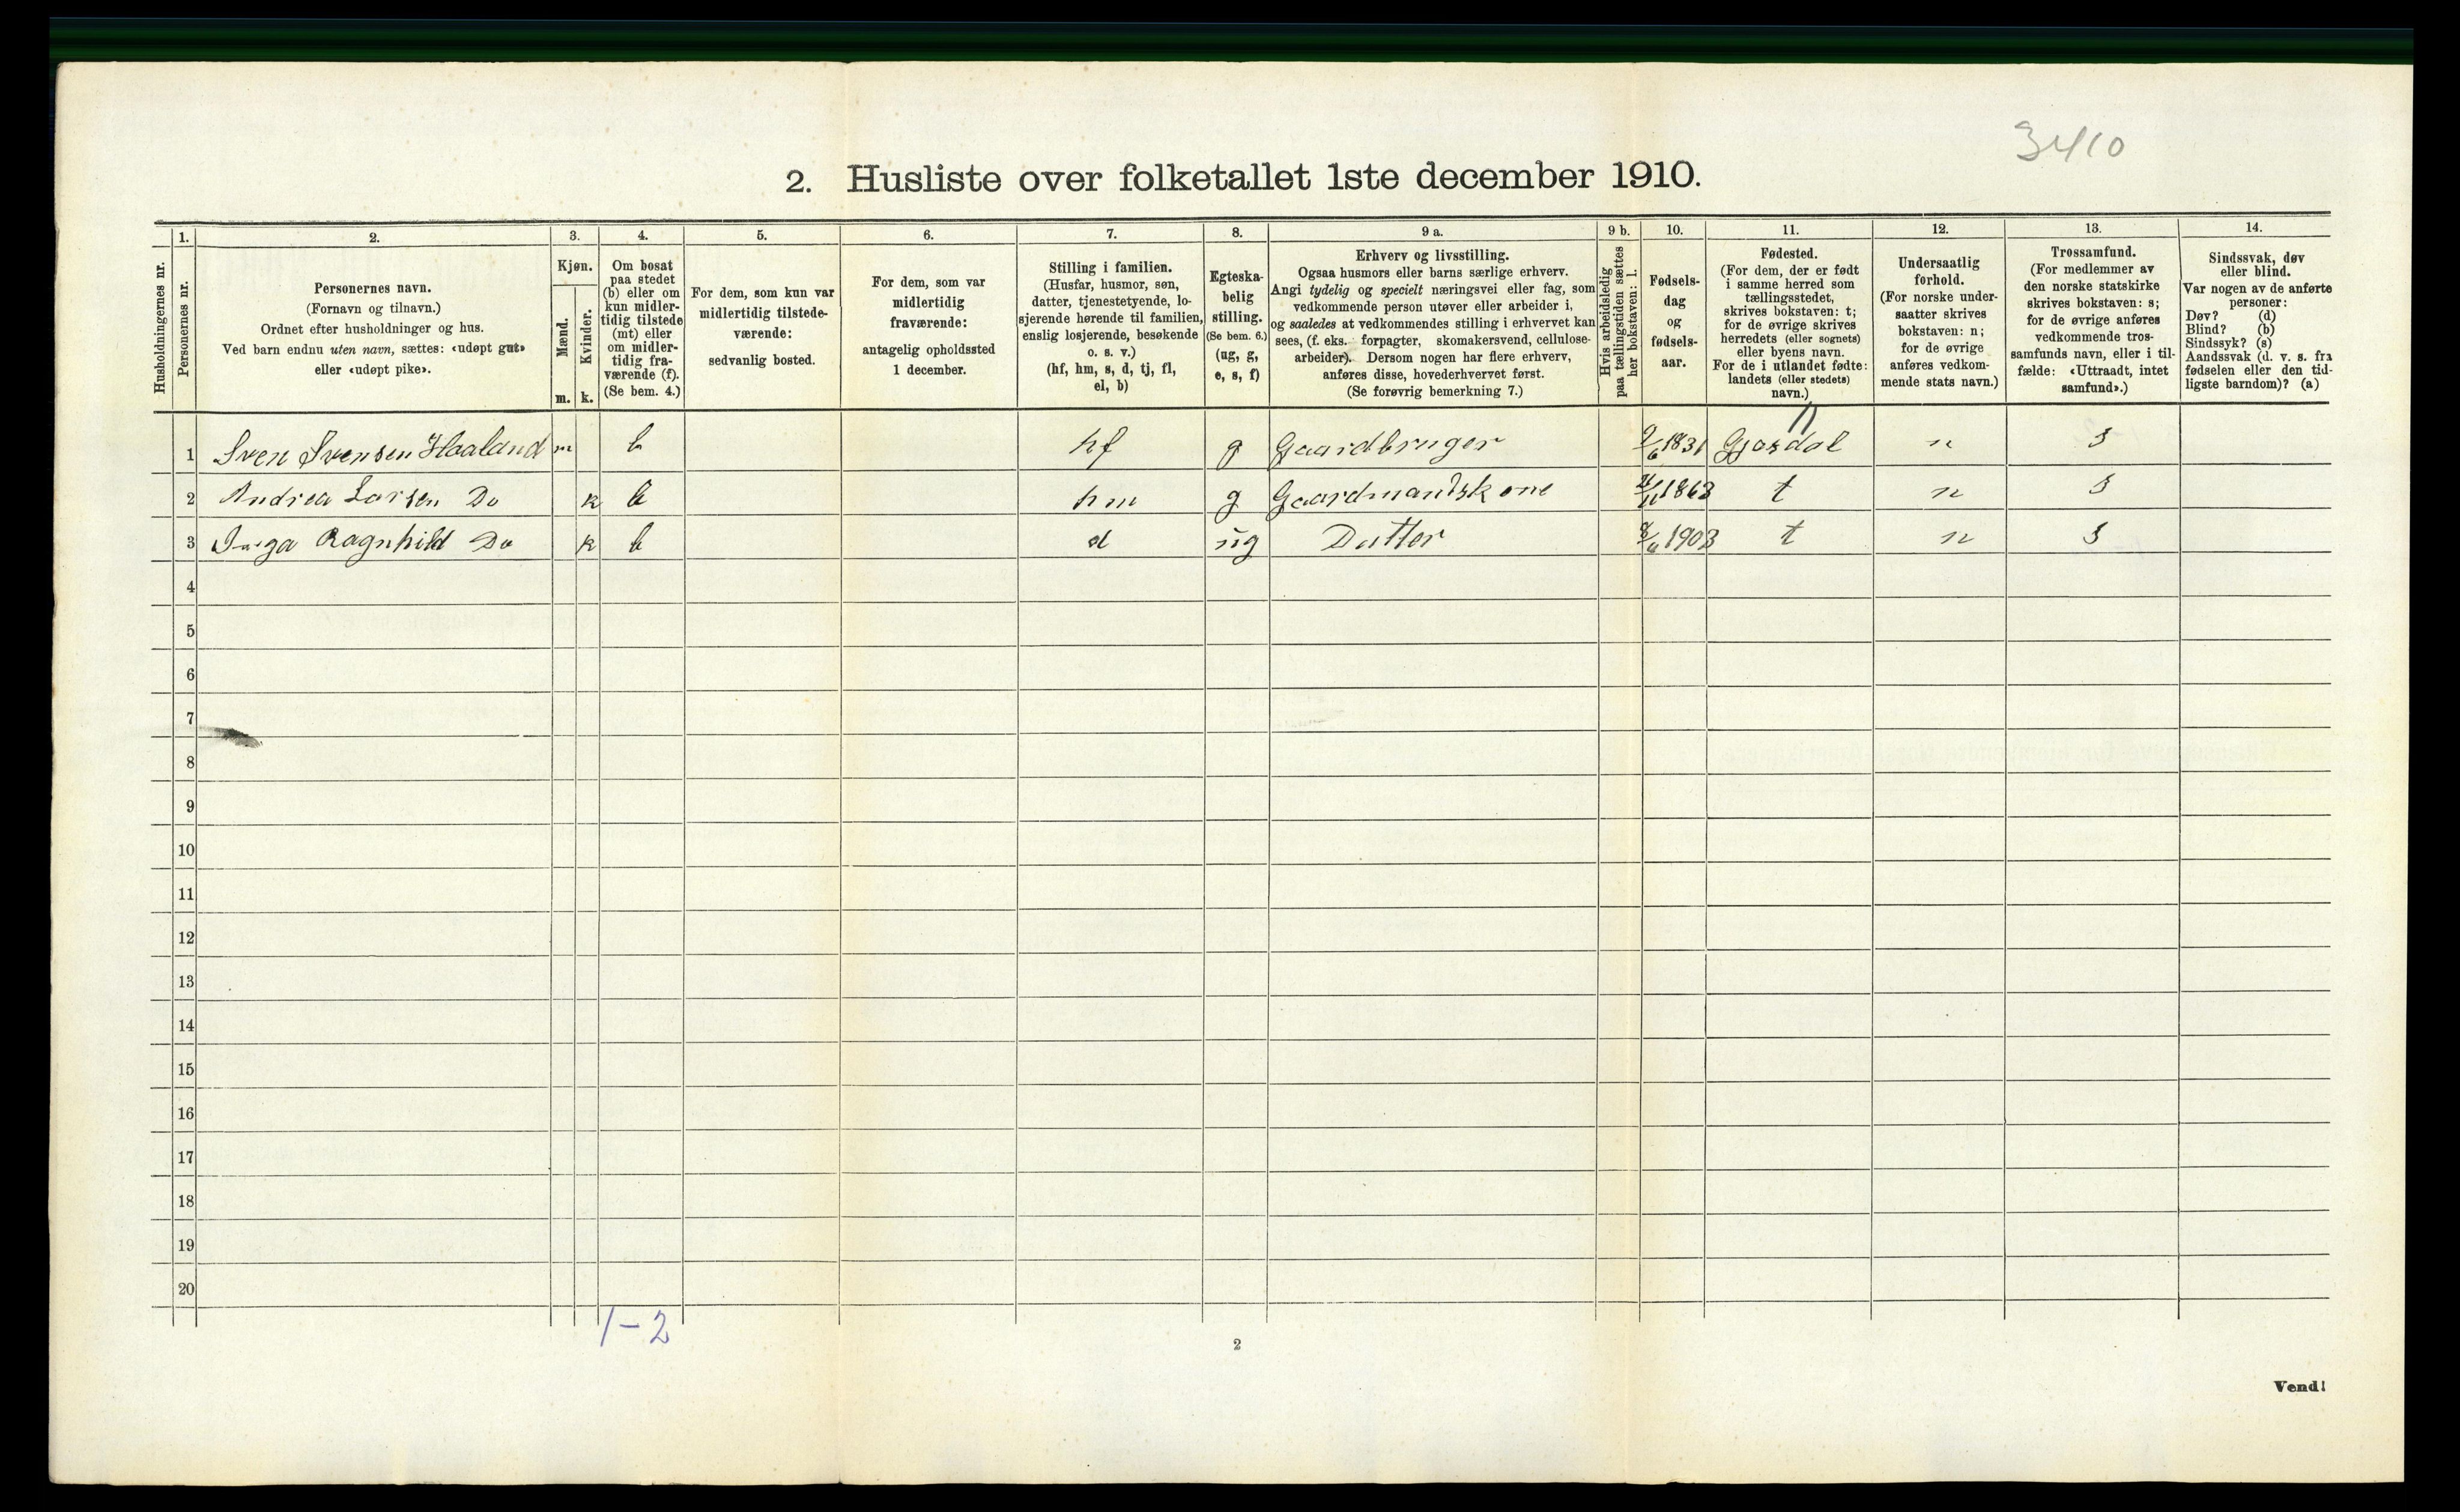 3410
2. Husliste over folketallet 1ste december 1910.
Husholdningernes nr.
1.
Personernes nr.
2.
Personernes navn.
(Fornavn og tilnavn.)
Ordnet efter husholdninger og hus.
Ved barn endnu uten navn, sættes: «udøpt gut»
eller «udøpt pike».
3.
Kjøn.
Mænd.
m.
Kvinder.
k.
4.
Om bosat
paa stedet
(b) eller om
kun midler-
tidig tilstede
(mt) eller
om midler-
tidig fra-
værende (f).
(Se bem. 4.)
5.
For dem, som kun var
midlertidig tilstede-
værende:
sedvanlig bosted.
6.
For dem, som var
midlertidig
fraværende:
antagelig opholdssted
1 december.
7.
Stilling i familien.
(Husfar, husmor, søn,
datter, tjenestetyende, lo-
sjerende hørende til familien,
enslig losjerende, besøkende
o. s. v.)
(hf, hm, s, d, tj, fl,
el, b)
8.
Egteska-
belig
stilling.
(Se bem. 6.)
(ug, g,
e, s, f)
9 a.
Erhverv og livsstilling.
Ogsaa husmors eller barns særlige erhverv.
Angi tydelig og specielt næringsvei eller fag, som
vedkommende person utøver eller arbeider i,
og saaledes at vedkommendes stilling i erhvervet kan
sees, (f. eks. forpagter, skomakersvend, cellulose-
arbeider). Dersom nogen har flere erhverv,
anføres disse, hovederhvervet først.
(Se forøvrig bemerkning 7.)
9 b.
Hvis arbeidsledig
paa tællingstiden sættes
her bokstaven: l.
10.
Fødsels-
dag
og
fødsels-
aar.
11.
Fødested.
(For dem, der er født
i samme herred som
tællingsstedet,
skrives bokstaven: t;
for de øvrige skrives
herredets (eller sognets)
eller byens navn.
For de i utlandet fødte:
landets (eller stedets)
navn.)
12.
Undersaatlig
forhold.
(For norske under-
saatter skrives
bokstaven: n;
for de øvrige
anføres vedkom-
mende stats navn.)
13.
Trossamfund.
(For medlemmer av
den norske statskirke
skrives bokstaven: s;
for de øvrige anføres
vedkommende tros-
samfunds navn, eller i til-
fælde: «Uttraadt, intet
samfund».)
14.
Sindssvak, døv
eller blind.
Var nogen av de anførte
personer:
Døv? (d)
Blind? (b)
Sindssyk? (s)
Aandssvak (d. v. s. fra
fødselen eller den tid-
ligste barndom)? (a)
1 Sven Svensen Haaland m b hf g Gaardbruger 9/6 1831 Gjosdal n s
2 Andrea Larsen Do k b hm g Gaardmandskone 1863 t n s
3 Inga Ragnhild Do k b d ug Datter 1903 t n s
4
5
6
7
8
9
10
11
12
13
14
15
16
17
18
19
20
1-2
2
Vend!